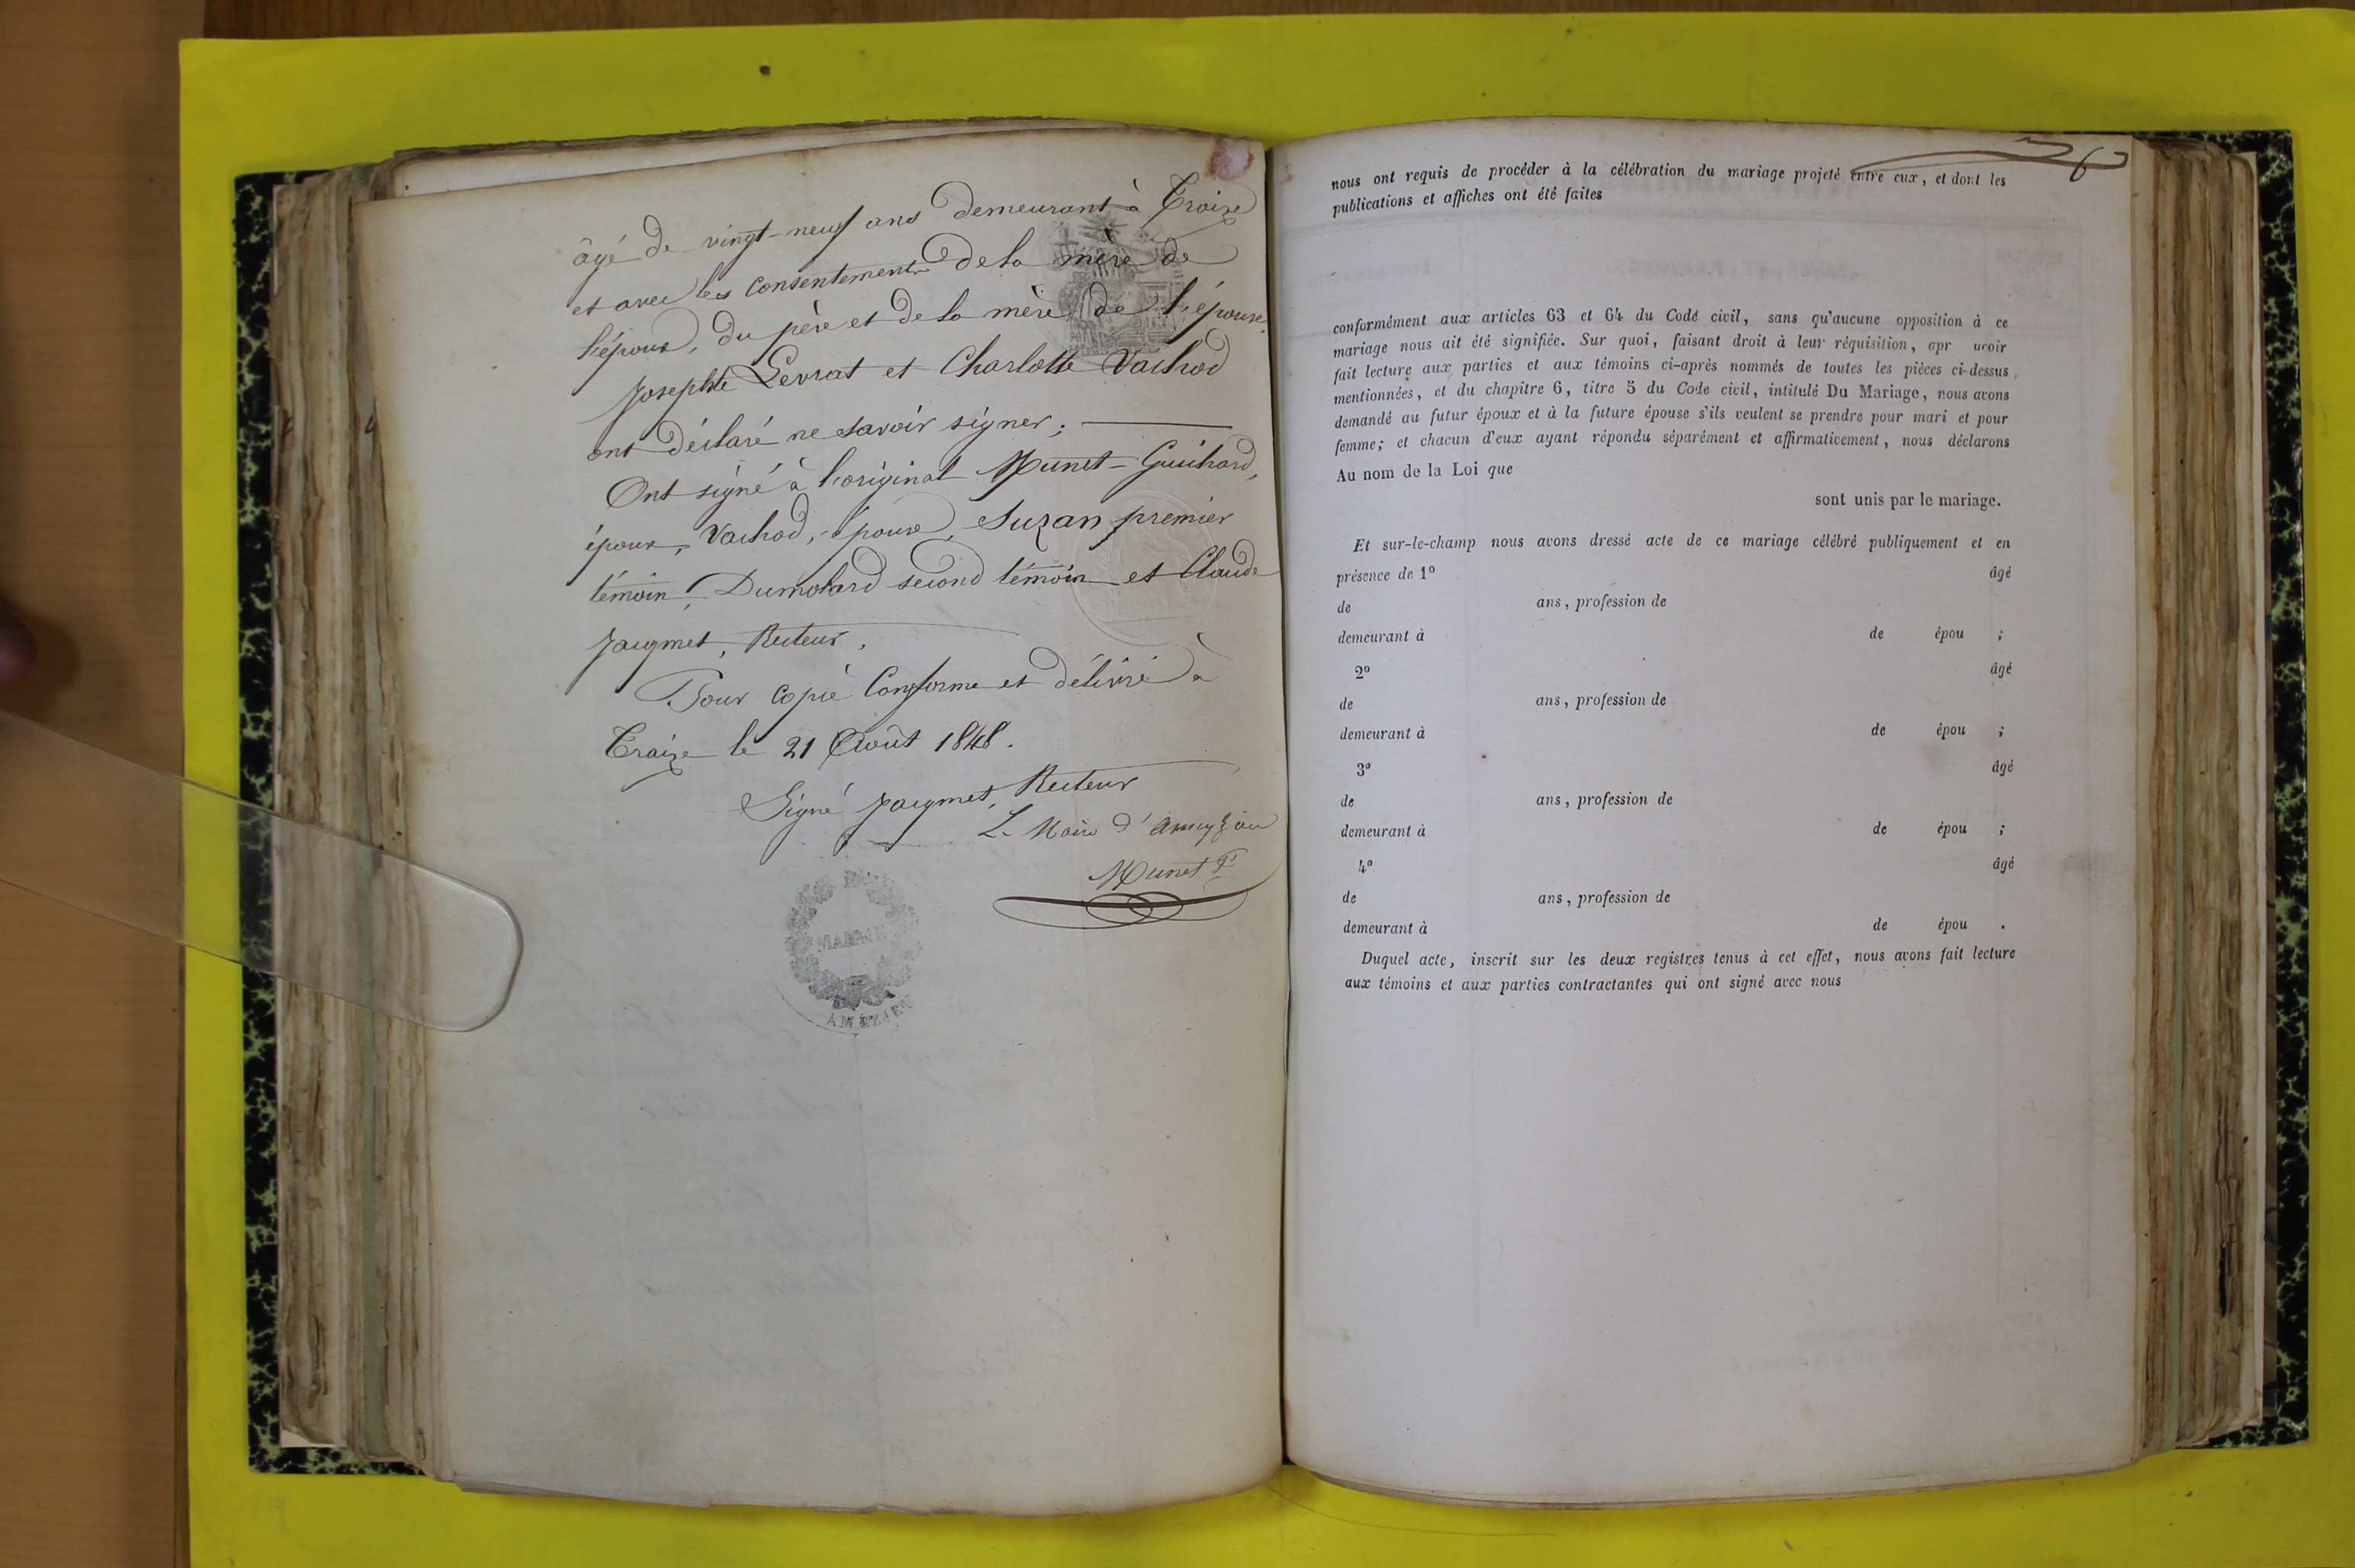 âgé de vingt-neuf ans demeurant à Traize
et avec les consentements de la mère de
l'époux, du père et de la mère de l'épouse.
Josephte Levrat et Charlotte Vachod
ont déclaré ne savoir signer ;
Ont signé à l'original Munet-Guichard,
époux, Vachod, épouse, Suzan premier
témoin, Dumolard second témoin et Claude
Jaymet, Recteur,
Pour copie Conforme et délivré à
Traize le 21 Août 1848.
Signé Jaymet, Recteur
Le Maire d'
Munet
MAIRIE
nous ont requis de procéder à la célébration du mariage projeté entre eux, et dont les
publications et affiches ont été faites
conformément aux articles 63 et 64 du Code civil, sans qu'aucune opposition à ce
mariage nous ait été signifiée. Sur quoi, faisant droit à leur réquisition, apr avoir
fait lecture aux parties et aux témoins ci-après nommés de toutes les pièces ci-dessus
mentionnées, et du chapitre 6, titre 5 du Code civil, intitulé Du Mariage, nous avons
demandé au futur époux et à la future épouse s'ils veulent se prendre pour mari et pour
femme; et chacun d'eux ayant répondu séparément et affirmativement, nous déclarons
Au nom de la Loi que
sont unis par le mariage.
Et sur-le-champ nous avons dressé acte de ce mariage célébré publiquement et en
présence de 1º âgé
de ans, profession de
demeurant à de épou ;
2º âgé
de ans, profession de
demeurant à de épou ;
3º âgé
de ans, profession de
demeurant à de épou ;
4º âgé
de ans, profession de
demeurant à de épou .
Duquel acte, inscrit sur les deux registres tenus à cet effet, nous avons fait lecture
aux témoins et aux parties contractantes qui ont signé avec nous